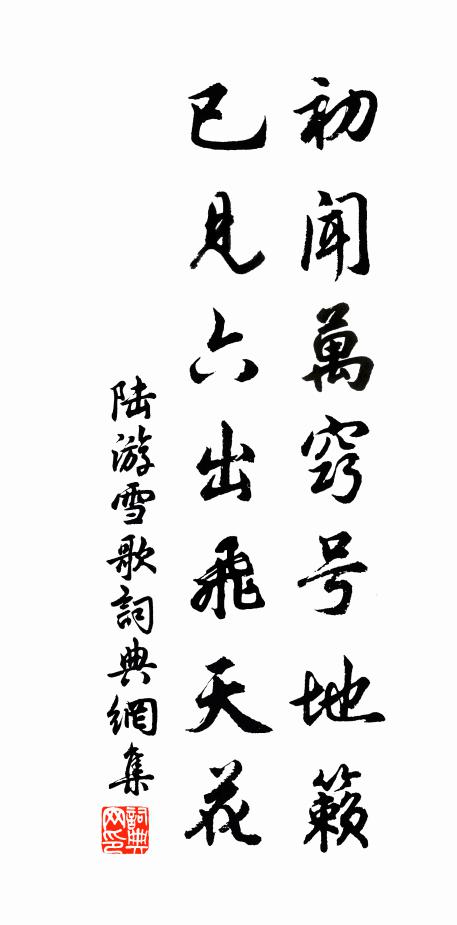 初闻萬窍号地籟
已見六出飛天花
陆游雪歌詞典網集
詞典网印